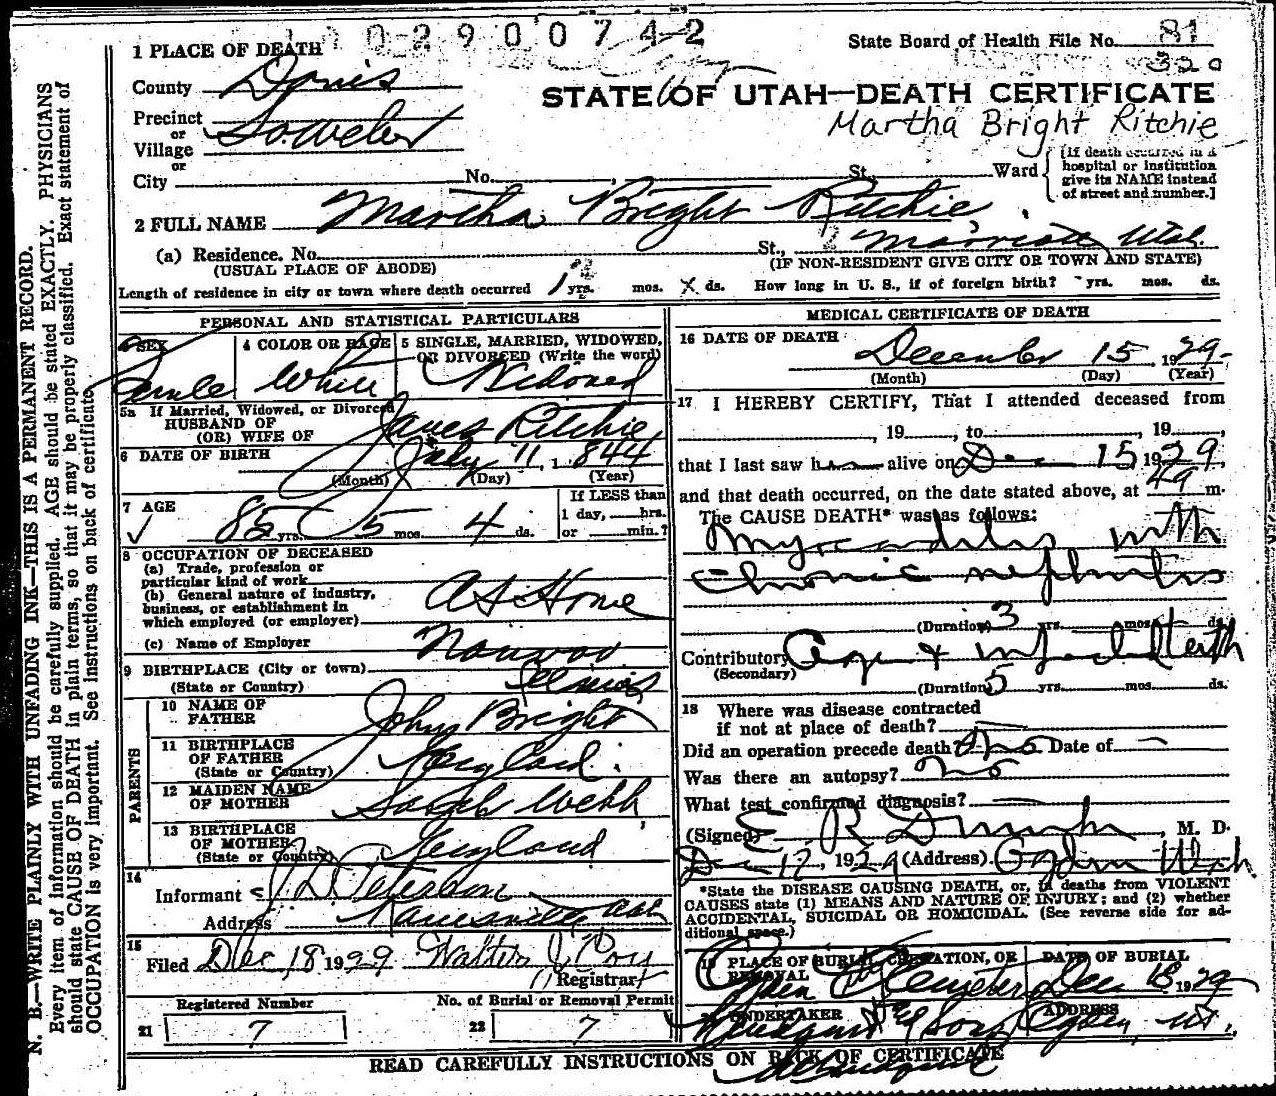 1 0 0 2 9 0 0 7 4 2
1 PLACE OF DEATH
State Board of Health File No. 81
320
County Davis
STATE OF UTAH—DEATH CERTIFICATE
Precinct
or
Village
So. Weber
Martha Bright Ritchie
or
City No. , St., Ward
[If death occurred in a
hospital or institution
give its NAME instead
of street and number.]
2 FULL NAME Martha Bright Ritchie
(a) Residence. No. St., Marriott Utah.
(USUAL PLACE OF ABODE)
(IF NON-RESIDENT GIVE CITY OR TOWN AND STATE)
Length of residence in city or town where death occurred yrs. mos. X ds. How long in U. S., if of foreign birth? yrs. mos. ds.
PERSONAL AND STATISTICAL PARTICULARS
3 SEX 4 COLOR OR RACE 5 SINGLE, MARRIED, WIDOWED,
OR DIVORCED (Write the word)
Female White Widowed
5a If Married, Widowed, or Divorced
HUSBAND OF
(OR) WIFE OF James Ritchie
6 DATE OF BIRTH July 11, 1844
(Month) (Day) (Year)
7 AGE
85 yrs. 5 mos. 4 ds.
If LESS than
1 day, hrs.
or min.?
8 OCCUPATION OF DECEASED
(a) Trade, profession or
particular kind of work
(b) General nature of industry,
business, or establishment in
which employed (or employer)
At Home
(c) Name of Employer
9 BIRTHPLACE (City or town) Nauvoo
(State or Country) Illinois
PARENTS
10 NAME OF
FATHER John Bright
11 BIRTHPLACE
OF FATHER
(State or Country) England.
12 MAIDEN NAME
OF MOTHER Sarah Webb
13 BIRTHPLACE
OF MOTHER
(State or Country) England
14
Informant Peterson
Address Kanesville, Utah
15
Filed Dec 18 1929 Walter
Registrar
Registered Number
21 7
No. of Burial or Removal Permit
22 7
MEDICAL CERTIFICATE OF DEATH
16 DATE OF DEATH
December 15 1929
(Month) (Day) (Year)
17 I HEREBY CERTIFY, That I attended deceased from
, 19 , to , 19 ,
that I last saw h alive on Dec 15 1929
and that death occurred, on the date stated above, at m.
The CAUSE DEATH* was as follows:
Myocarditis with
Chronic nephritis
(Duration) 3 yrs. mos. ds.
Contributory
(Secondary)
(Duration) 5 yrs. mos. ds.
18 Where was disease contracted
if not at place of death?
Did an operation precede death? no Date of —
Was there an autopsy? no
What test confirmed diagnosis?
(Signed) E R , M. D.
Dec 17, 1929 (Address). Ogden Utah.
*State the DISEASE CAUSING DEATH, or, in deaths from VIOLENT
CAUSES state (1) MEANS AND NATURE OF INJURY; and (2) whether
ACCIDENTAL, SUICIDAL OR HOMICIDAL. (See reverse side for ad-
ditional space.)
19 PLACE OF BURIAL, CREMATION, OR
REMOVAL
DATE OF BURIAL
Ogden Cemetery Dec 18 1929
UNDERTAKER ADDRESS
Lindquist & Sons Ogden, Ut.
READ CAREFULLY INSTRUCTIONS ON BACK OF CERTIFICATE
N. B.—WRITE PLAINLY WITH UNFADING INK—THIS IS A PERMANENT RECORD.
Every item of information should be carefully supplied. AGE should be stated EXACTLY. PHYSICIANS
should state CAUSE OF DEATH in plain terms, so that it may be properly classified. Exact statement of
OCCUPATION is very important. See instructions on back of certificate